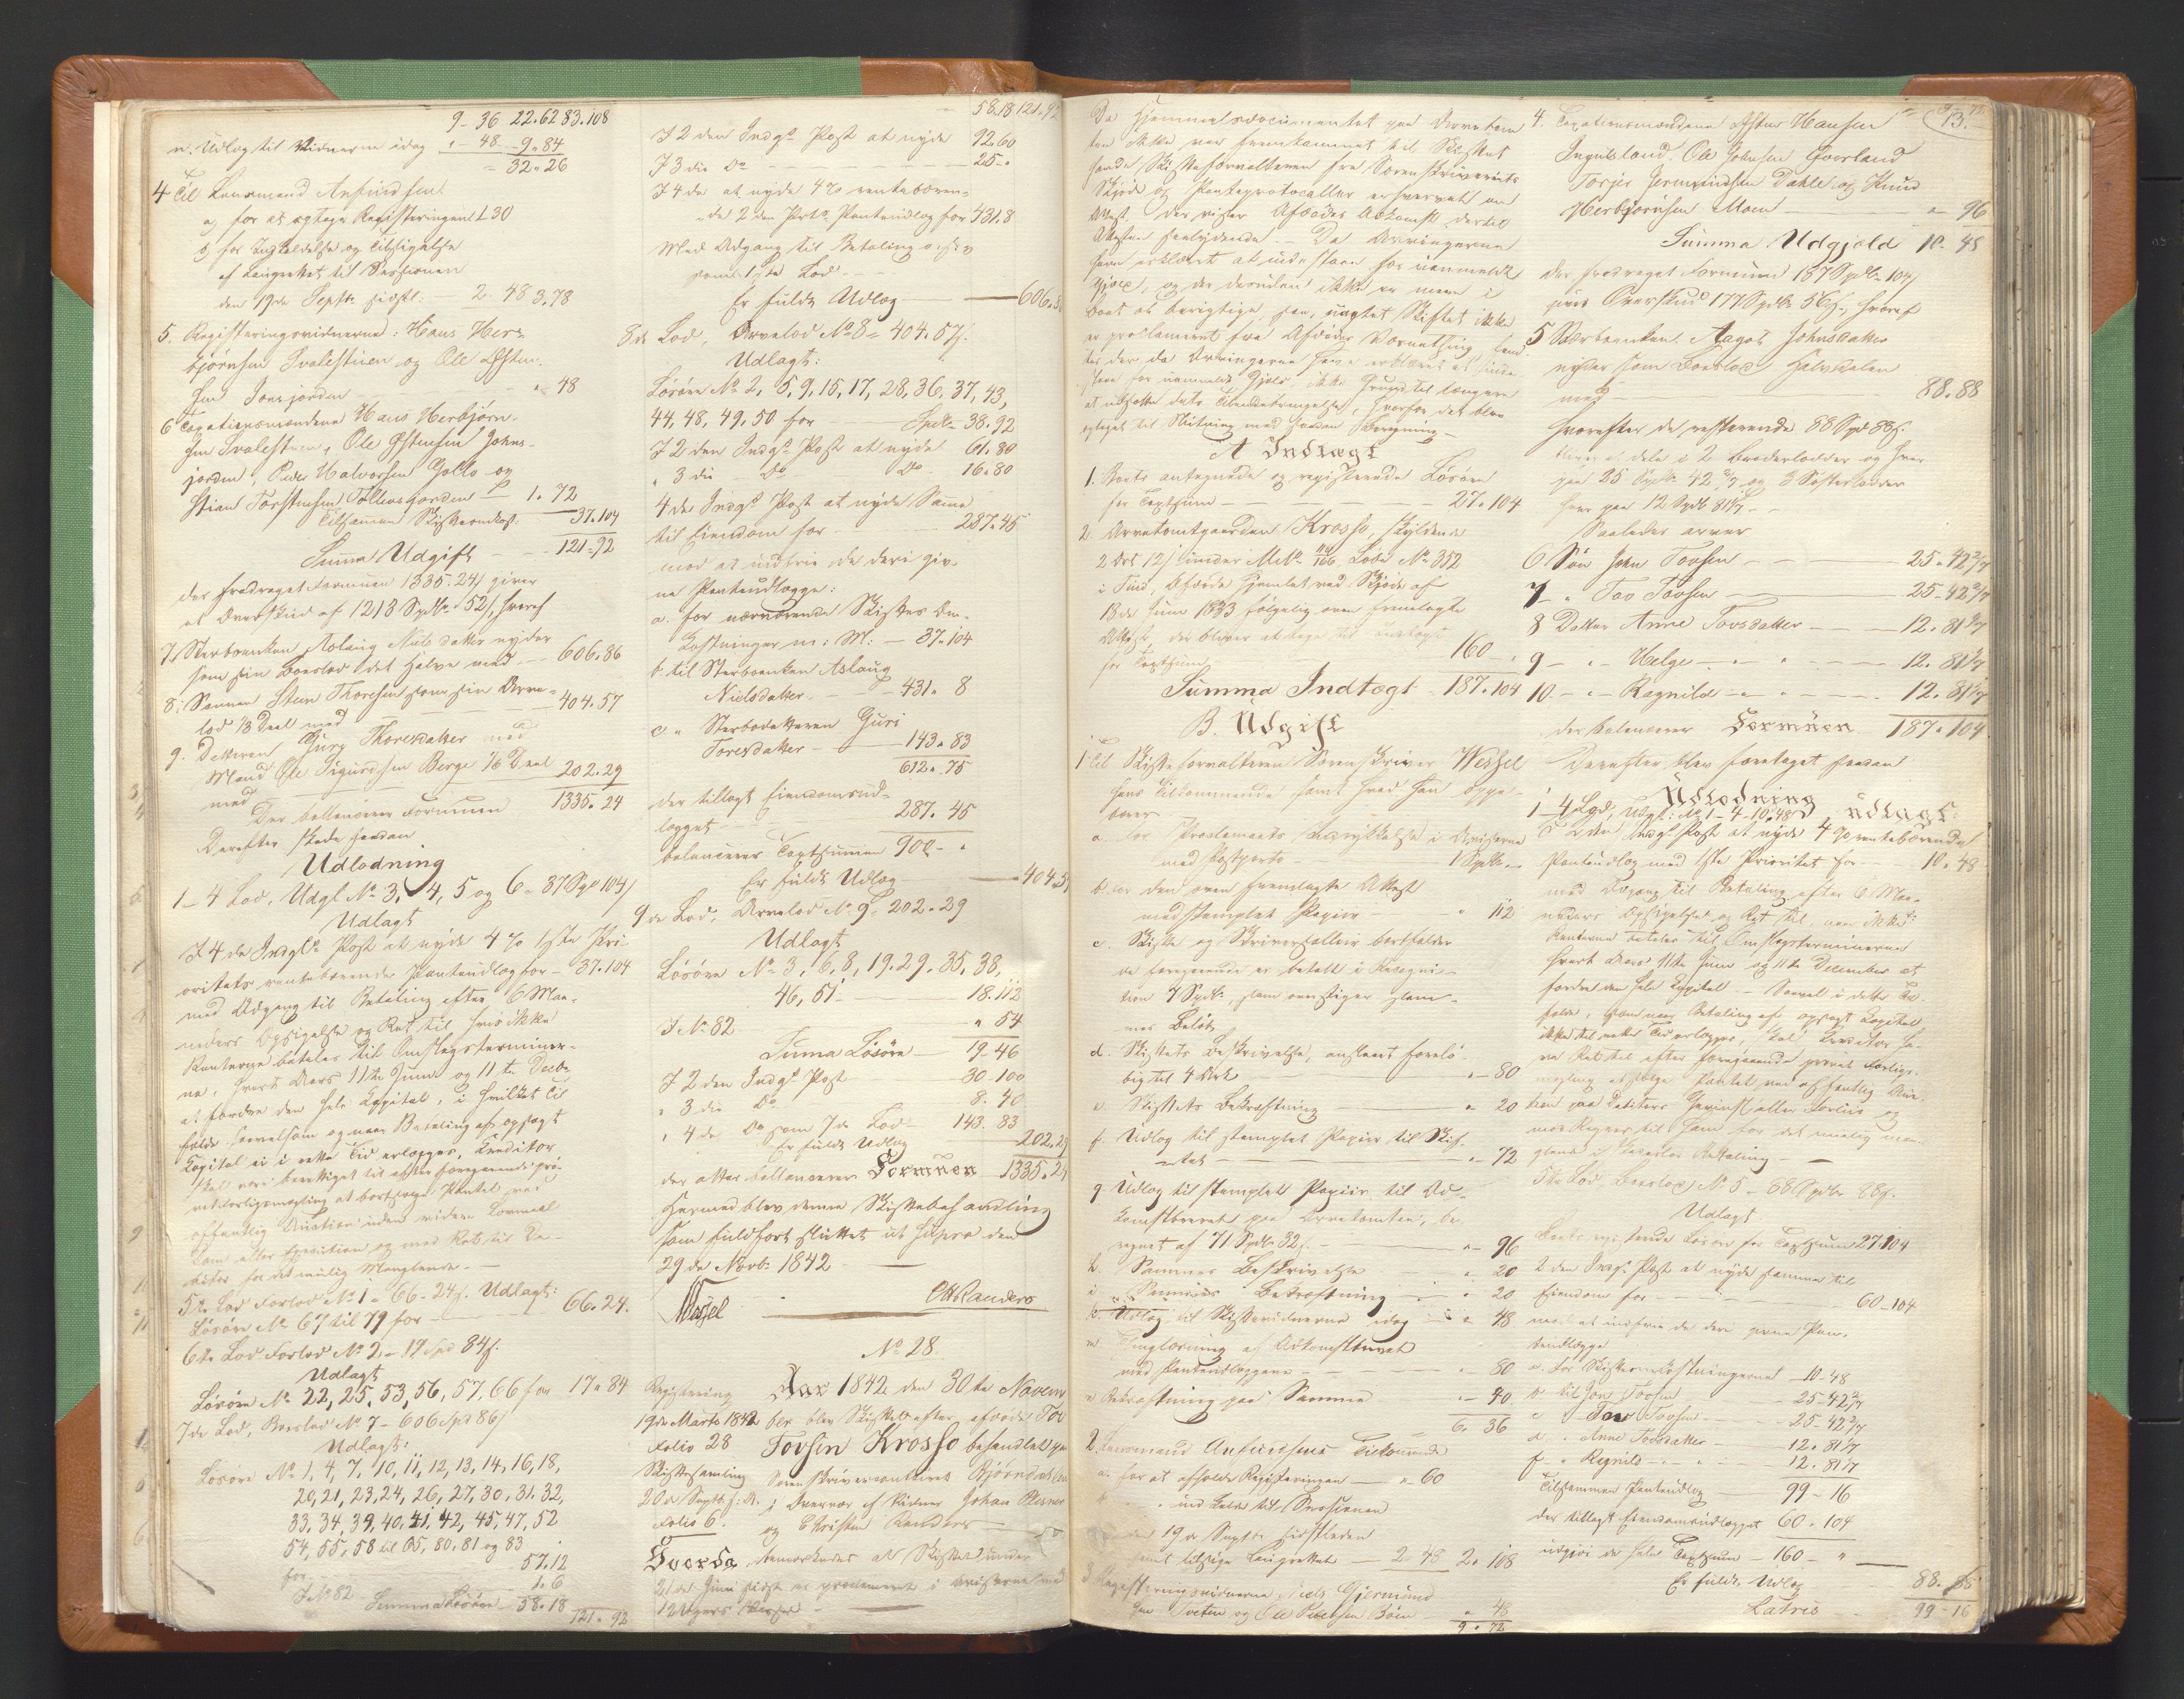 9 - 36 22.62 83.108
n. Udlæg til Vidnerne idag " - 48 - 9.84
= 32.26
4 Til Lensmand Anfindsen
a, for at optage Registeringen 1.30
b, for Indkaldelse og Tilsigelse
af Laugrettet til Sessionen
den 19de Septbr sidstl: - 2.48 3.78
5. Registeringsvidnerne: Hans Her-
bjørnsen Ivalestuen og Ole Østen-
sen Jonsjorden - " 48
6 Taxationsmændene Hans Herbjørn-
sen Ivalestuen, Ole Østensen Johns-
jorden, Peder Halvorsen Gollo og
Stian Torstensen Tollevsjorden 1.72
Tilsammen Skifteomkost: 37.104
Summa Udgift - 121.92
der fradraget Formuen 1335.24 s giver
et Overskud af 1213 Spdlr 52 s, hvoraf
7. Sterboenken Aslaug Nielsdatter nyder
som sin Boeslod det halve med - 606.86
8. Sønnen Sten Thoresen som sin Arve-
lod 1/3 Deel med - 404.57
9. Datteren Gury Thoresdatter med
Mand Ole Sigurdsen Berge 1/6 Deel
med 202.29
Der ballancerer Formuen 1335.24
Derefter skede saadan
Udlodning
1-4 Lod, Udgl No 3, 4, 5 og 6 - 37 Spd 104 s
Udlagt
I 4de Indgts Post at nyde 4 % 1ste Pri-
oritets rentebærende Panteudlæg for - 37.104
med Adgang til Betaling efter 6 Maa-
neders Opsigelse og Ret til hvis ikke
Renterne betales til Omslagsterminer-
ne, hvert Aars 11te Juni og 11te Decbr
at fordre den hele Kapital, i hvilket Til-
fælde saavelsom og naar Betaling af opsagt
Kapital ei i rette Tid erlægges, Kreditor
skal være berettiget til efter foregaaende pri-
vat Forligsmægling at bortsælge Pantet ved
offentlig Auction uden videre Lovmaal
Dom eller Execution og med Ret til De-
bitor for det mulig Manglende. -
5te Lod Forlod No 1 - 66-24 s. Udlagt:
Løsøre No 67 til 79 for - 66.24.
6te Lod Forlod No 2. - 17 Spd 84 s.
Udlagt
Løsøre No 22, 25, 53, 56, 57, 66 for 17 " 84
7de Lod, Boeslod No 7 - 606 Spd 86 s
Udlagt:
Løsøre No 1, 4, 7, 10, 11, 12, 13, 14, 16, 18,
20, 21, 23, 24, 26, 27, 30, 31, 32,
33, 34, 39, 40, 41, 42, 45, 47, 52
54, 55, 58 til 65, 80, 81 og 83
for 57.12
I No 82 1.6
Summa Løsøre - 58.18
121.92
58.18 121.92
I 2den Indgts Post at nyde 92.60
I 3die Do 25 "
I 4de at nyde 4 % rentebæren-
de 2den Prts Panteudlæg for 431.8
Med Adgang til Betaling ogsaa
som 1ste Lod
Er fuldt Udlæg - 606.86
8de Lod, Arvelod No 8 = 404.57 s.
Udlagt:
Løsøre No 2, 5, 9, 15, 17, 28, 36, 37, 43,
44, 48, 49, 50 for - Spdlr 38.92
I 2den Indgts Post at nyde 61.80
" 3die Do Do 16.80
4de Indgts Post at nyde Samme
til Eiendom for 287.45
mod at indfrie de deri giv-
ne Panteudlægge:
a. for nærværende Skiftes Om-
kostninger m: M: - 37.104
b. til Sterboenken Aslaug
Nielsdatter - 431 " 8
c " Sterbodatteren Guri
Toresdatter - 143 " 83
612 " 75
der tillagt Eiendomsud-
lægget 287.45
balancerer Taxtsummen 900 - "
Er fuldt Udlæg - 404.57
9de Lod, Arvelod No 9 = 202.29
Udlagt
Løsøre No 3, 6, 8, 19, 29, 35, 38,
46, 51 - 18.112
I No 82 " 54
Summa Løsøre - 19-46
I 2den Indgts Post 30-100
" 3die Do 8.40
" 4de Do som 7de Lod 143.83
Er fuldt Udlæg 202.29
der atter ballancerer Formuen 1335.24
Hermed blev denne Skiftebehandling
som fuldført sluttet ut supra den
29de Novbr 1842
Wessel CRanders
No 28.
Registering Aar 1842 den 30te Novem-
19de Marts 1842 ber blev Skiftet efter afdøde Tov
Folio 28 Tovsen Krosso behandlet paa
Skiftesamling Sorenskrivercontoiret Bjørndalen
20de Septb. s: A. i Overvær af Vidner Johan Plesner
Folio 6. og Christen Randers
Hvorda bemærkedes at Skiftet under
21de Juni sidst er proclameret i Aviserne med
12 Ugers Varsel
13.
Da Hjemmelsdocumentet paa Arvetom-
ten ikke var fremkommet til Skiftet
havde Skifteforvalteren fra Sorenskriveriets
Skjøde og Panteprotocoller erhvervet en
Attest, der viser Afdødes Adkomst dertil
Attesten saalydende. - Da Arvingerne
have erklæret at indestaae for uanmeldt
Gjæld, og der desuden ikke er mere i
Boet at berigtige, saa, uagtet Skiftet ikke
er proclameret fra Afdødes Værnething, fand-
tes der da Arvingerne have erklæret at inde-
staae for uanmeldt Gjæld, ikke Grund til længere
at udsætte dets Tilendebringelse, hvorfor det blev
optaget til Slutning med saadan Beregning -
A Indtægt
1. Boets antegnede og registerede Løsøre
for Taxtsum - 27.104
2. Arvetomtgaarden Krosso, skyldende
2 Ort 12 s under Mt No 166, Løbe No 352
i Tind, Afdøde hjemlet ved Skjøde af
18de Juni 1833 følgelig oven fremlagte
Attest, der bliver at tage til Indtægt
for Taxtsum 160 - "
Summa Indtægt 187.104
B. Udgift
1 Til Skifteforvalteren Sorenskriver Wessel
hans Tilkommende samt hvad han oppe-
bærer
a. for Proclamaets Indrykkelse i Aviserne
med Postporto - 1 Spdlr -
b. for den oven fremlagte Attest
med stemplet Papiir - " 112
c. Skifte og Skriversallair bortfalder
da foregaaende er betalt i Recogni-
tion 4 Spdlr, som overstiger sam-
mes Beløb
d. Skiftets Beskrivelse, anslaaet foreløb-
big til 4 Ark - " - 80
e. Skiftets Bekræftning - " - 20
f. Udlæg til stemplet Papiir til Skif-
tet - " - 72
g Udlæg til stemplet Papiir til Ad-
komstbrevet paa Arvetomten, be-
regnet af 71 Spdlr 32 s. - " - 96
h. Sammes Beskrivelse " 20
i " Sammes Bekræftning - " 20
k. Udlæg til Skiftevidnerne idag - " 48
m Thinglæsning af Adkomstbrevet
med Panteudlæggene - " 80
n Bekræftning paa Samme " - 40.
6. 36
2. Lensmand Anfindsens Tilkommende
a. for at afholde Registeringen - " 60
" " indkalde til Sessionen
den 19de Septbr sidstleden
samt tilsige Laugrettet - 2-48 2.108
3 Registeringsvidnerne Niels Giermund-
sen Tveten og Ole Pedersen Bøen " 48
9 " 72
9 " 72
4. Taxationsmændene Østen Hansen
Ingulsland, Ole Johnsen Gverland
Torjer Germundsen Dahle og Knud
Herbjørnsen Moen - " - 96
Summa Udgjæld 10-48
der fradraget Formuen 187 Spdlr 104 s
giver Overskud 177 Spdlr 56 s, hvoraf
5 Sterboenken Aagot Johnsdatter
nyder som Boeslod Halvdelen
med - 88.88
hvorefter de resterende 88 Spd 88 s.
bliver at dele i 2 Broderlodder og hver
paa 25 Spdlr. 42 2/7 og 3 Søsterlodder
hver paa 12 Spdlr 81 1/7
Saaledes arver
6 Søn John Tovsen - 25-42 2/7
7 " Tov Tovsen - 25-42 2/7
8 Datter Anne Tovsdatter - 12.81 1/7
9 - " - Helge - " - " - 12.81 1/7
10. - " - Ragnild - " - " - 12.81 1/7
der balancerer Formuen 187.104
Derefter blev foretaget saadan
Udlodning
1-4 Lod, Udgl: No 1-4-10.48 s udlagt:
I 2den Indgt Post at nyde 4 % rentebærende
Panteudlæg med 1ste Prioritet for - 10.48
med Adgang til Betaling efter 6 Maa-
neders Opsigelse og Ret til, naar ikke
Renterne betales til Omslagsterminerne
hvert Aars 11te Juni og 11te December at
fordre den hele Kapital. - Saavel i dette Til-
fælde, som naar Betaling af opsagt Kapital
ikke til rette Tid erlægges, skal Kreditor ha-
ve Ret til efter foregaaende privat Forligs-
mægling at sælge Pantet ved offentlig Auc-
tion paa Debitors Gevinst eller Forliis og
med Regres til ham for det muelig man-
glende i skadesløs Betaling -
5te Lod, Boeslod No 5 - 88 Spdlr 88 s.
Udlagt
Boets registerede Løsøre for Taxtsum 27.104
2den Indgts Post at nyde samme til
Eiendom for 60-104
mod at indfrie de deri givne Pan-
teudlægge
a. for Skifteomkostningerne - 10-48
b til John Tovsen - 25-42 2/7
c " Tov Tovsen - 25-42 2/7
d " Anne Tovsdatter - 12.81 1/7
f " Ragnild - " - 12.81 1/7
Tilsammen Panteudlæg - 99-16
der tillagt Eiendomsudlægget 60.104
udgjør de hele Taxtsum - 160 - "
Er fuldt Udlæg 88.88
Latris 99-16